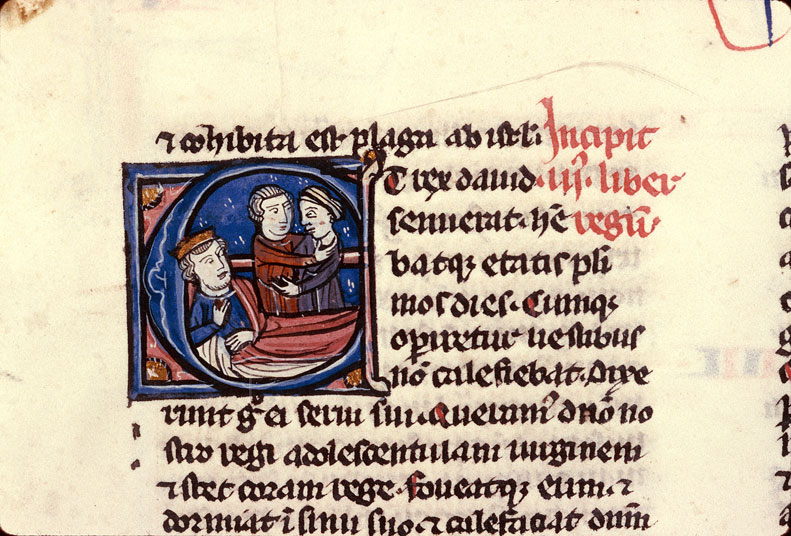 ⁊ cohibita est plaga ab isrl. Incipit
ET rex dauid .iij. liber
senuerat. hẽ regũ.
batqȝ etatis plı̃
mos dies. Cumqȝ
operiretur uestibus
nõ calefiebat. Dixe
runt gͦ ei serui sui. Queramꝰ dñõ no
stro regi adolescentulam uirginem
⁊ stet coram rege. foueatqȝ eum. ⁊
dormiat ĩ sinu suo. ⁊ calefaciat dñm